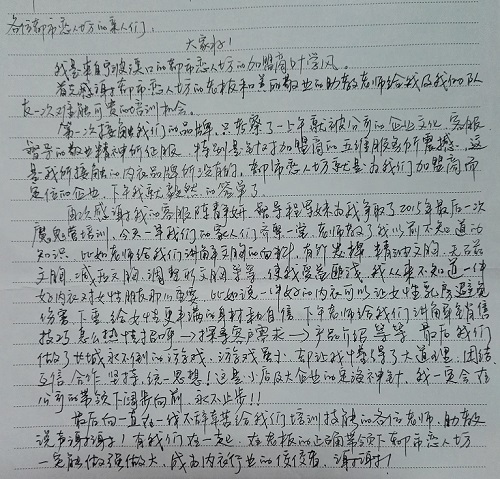 各位都市恋人坊的亲人们：
大家好！
我是来自宁波溪口的都市恋人坊的加盟商叶学风。
首先感谢都市恋人坊的老板和美丽敬业的助教老师给我及我们团队
又一次对接难可贵的培训机会。
第一次接触我们的品牌，只考察了一上午就被公司的企业文化，客服
督导的敬业精神所征服，特别是针对加盟商的五维服务所震撼，这
是我所接触的内衣品牌所没有的，都市恋人坊就是为我们加盟商而
定位的企业，下午我就毅然的签单了。
再次感谢我的客服陈 妍，督导程 妹为我争取了2015年最后一次
魔鬼营培训，今天一早我们的家人们齐聚一堂，老师教了我以前不知道的
知识，比如老师给我们讲解文胸的面料，有
文胸，调整型文胸等等，使我受益匪浅，我从来不知道一件
好内衣对女性朋友那么重要，比如说一件好的内衣可以让女性乳房避免
伤害，下垂，给女性更丰满的身材和自信，下午老师给我们讲解销售
技巧，怎么热情打招呼→探寻客户需求→产品介绍等等，最后我们
做了长城永不倒的游戏，游戏虽小，却让我们懂得了大道理，团结
互信，合作，坚持，统一思想！这是小店及大企业的定海神针，我一定会在
公司的带领下阔步向前，永不止步！！
最后向一直在一线不辞辛苦给我们培训技能的各位老师，助教
说声谢谢！有我们在一起，在老板的正确带领下都市恋人坊
一定能做强做大，成为内衣行业的佼佼者，谢谢！